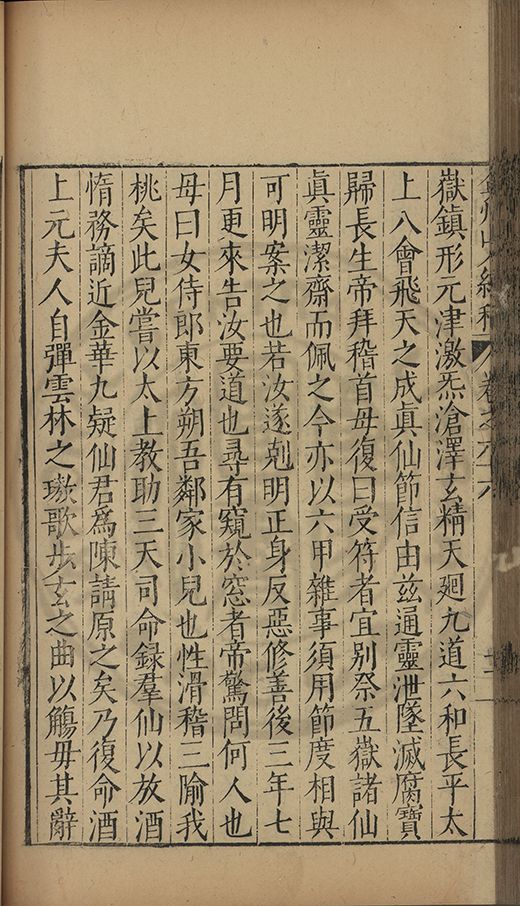 弇州山人續稿 卷之六十六 十一
嶽鎮形元津激炁滄澤玄精天廻九道六和長平太
上八會飛天之成眞仙節信由兹通靈泄墜滅腐寶
歸長生帝拜稽首母復曰受符者宜别祭五嶽諸仙
眞靈潔齋而佩之今亦以六甲雜事須用節度相與
可明案之也若汝遂剋明正身反惡修善後三年七
月更來告汝要道也尋有窺於窓者帝驚問何人也
母曰女侍郎東方朔吾鄰家小兒也性滑稽三隃我
桃矣此兒嘗以太上教助三天司命録羣仙以放酒
惰務謫近金華九疑仙君爲陳請原之矣乃復命酒
上元夫人自彈雲林之璈歌步玄之曲以觴毋其辭